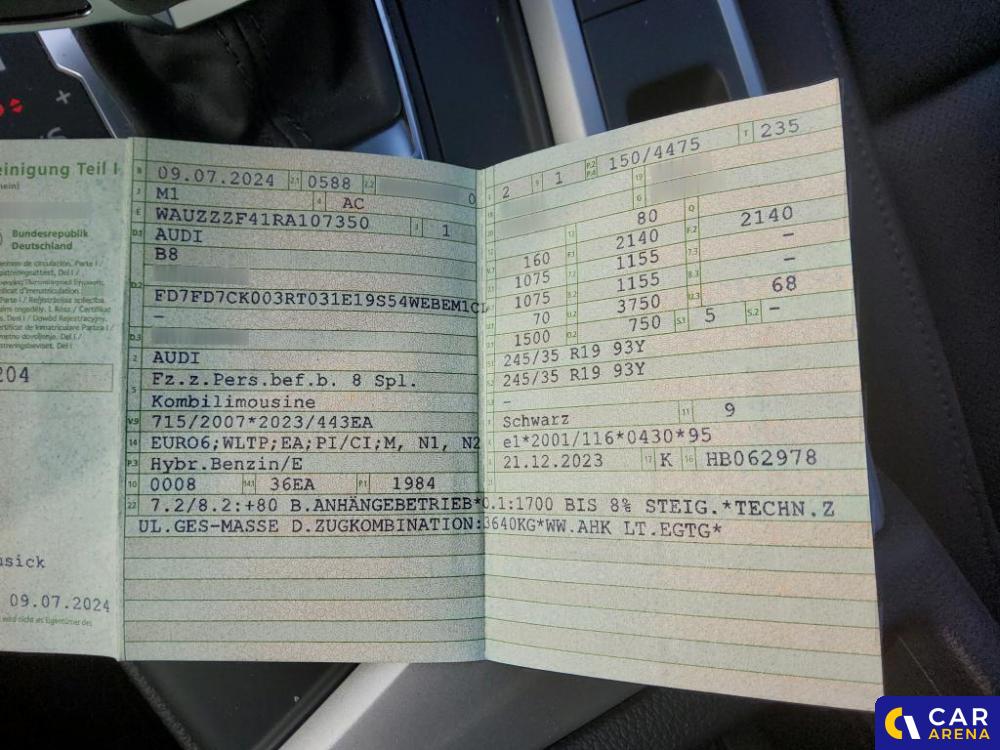 einigung Teil I
Bundesrepublik
Deutschland
204
usick
09.07.2024
B 09.07.2024 2.1 0588 2.2 0
J M1 4 AC
E WAUZZZF41RA107350 3 1
D.1 AUDI
B8
D.2
FD7FD7CK003RT031E19S54WEBEM1CL
–
D.3
2 AUDI
5 Fz.z.Pers.bef.b. 8 Spl.
Kombilimousine
V.9 715/2007*2023/443EA
14 EURO6;WLTP;EA;PI/CI;M, N1, N2
P.3 Hybr.Benzin/E
10 0008 14.1 36EA P.1 1984
22 7.2/8.2:+80 B.ANHÄNGEBETRIEB*0.1:1700 BIS 8% STEIG.*TECHN.Z
UL.GES-MASSE D.ZUGKOMBINATION:3640KG*WW.AHK LT.EGTG*
2 9 1 P.2 P.4 150/4475 T 235
80
2140 2140
160 1155 –
1075 1155 –
1075 3750 68
70 750 S.1 5 S.2 –
1500
245/35 R19 93Y
245/35 R19 93Y
–
Schwarz 11 9
e1*2001/116*0430*95
21.12.2023 17 K 16 HB062978
CAR
ARENA